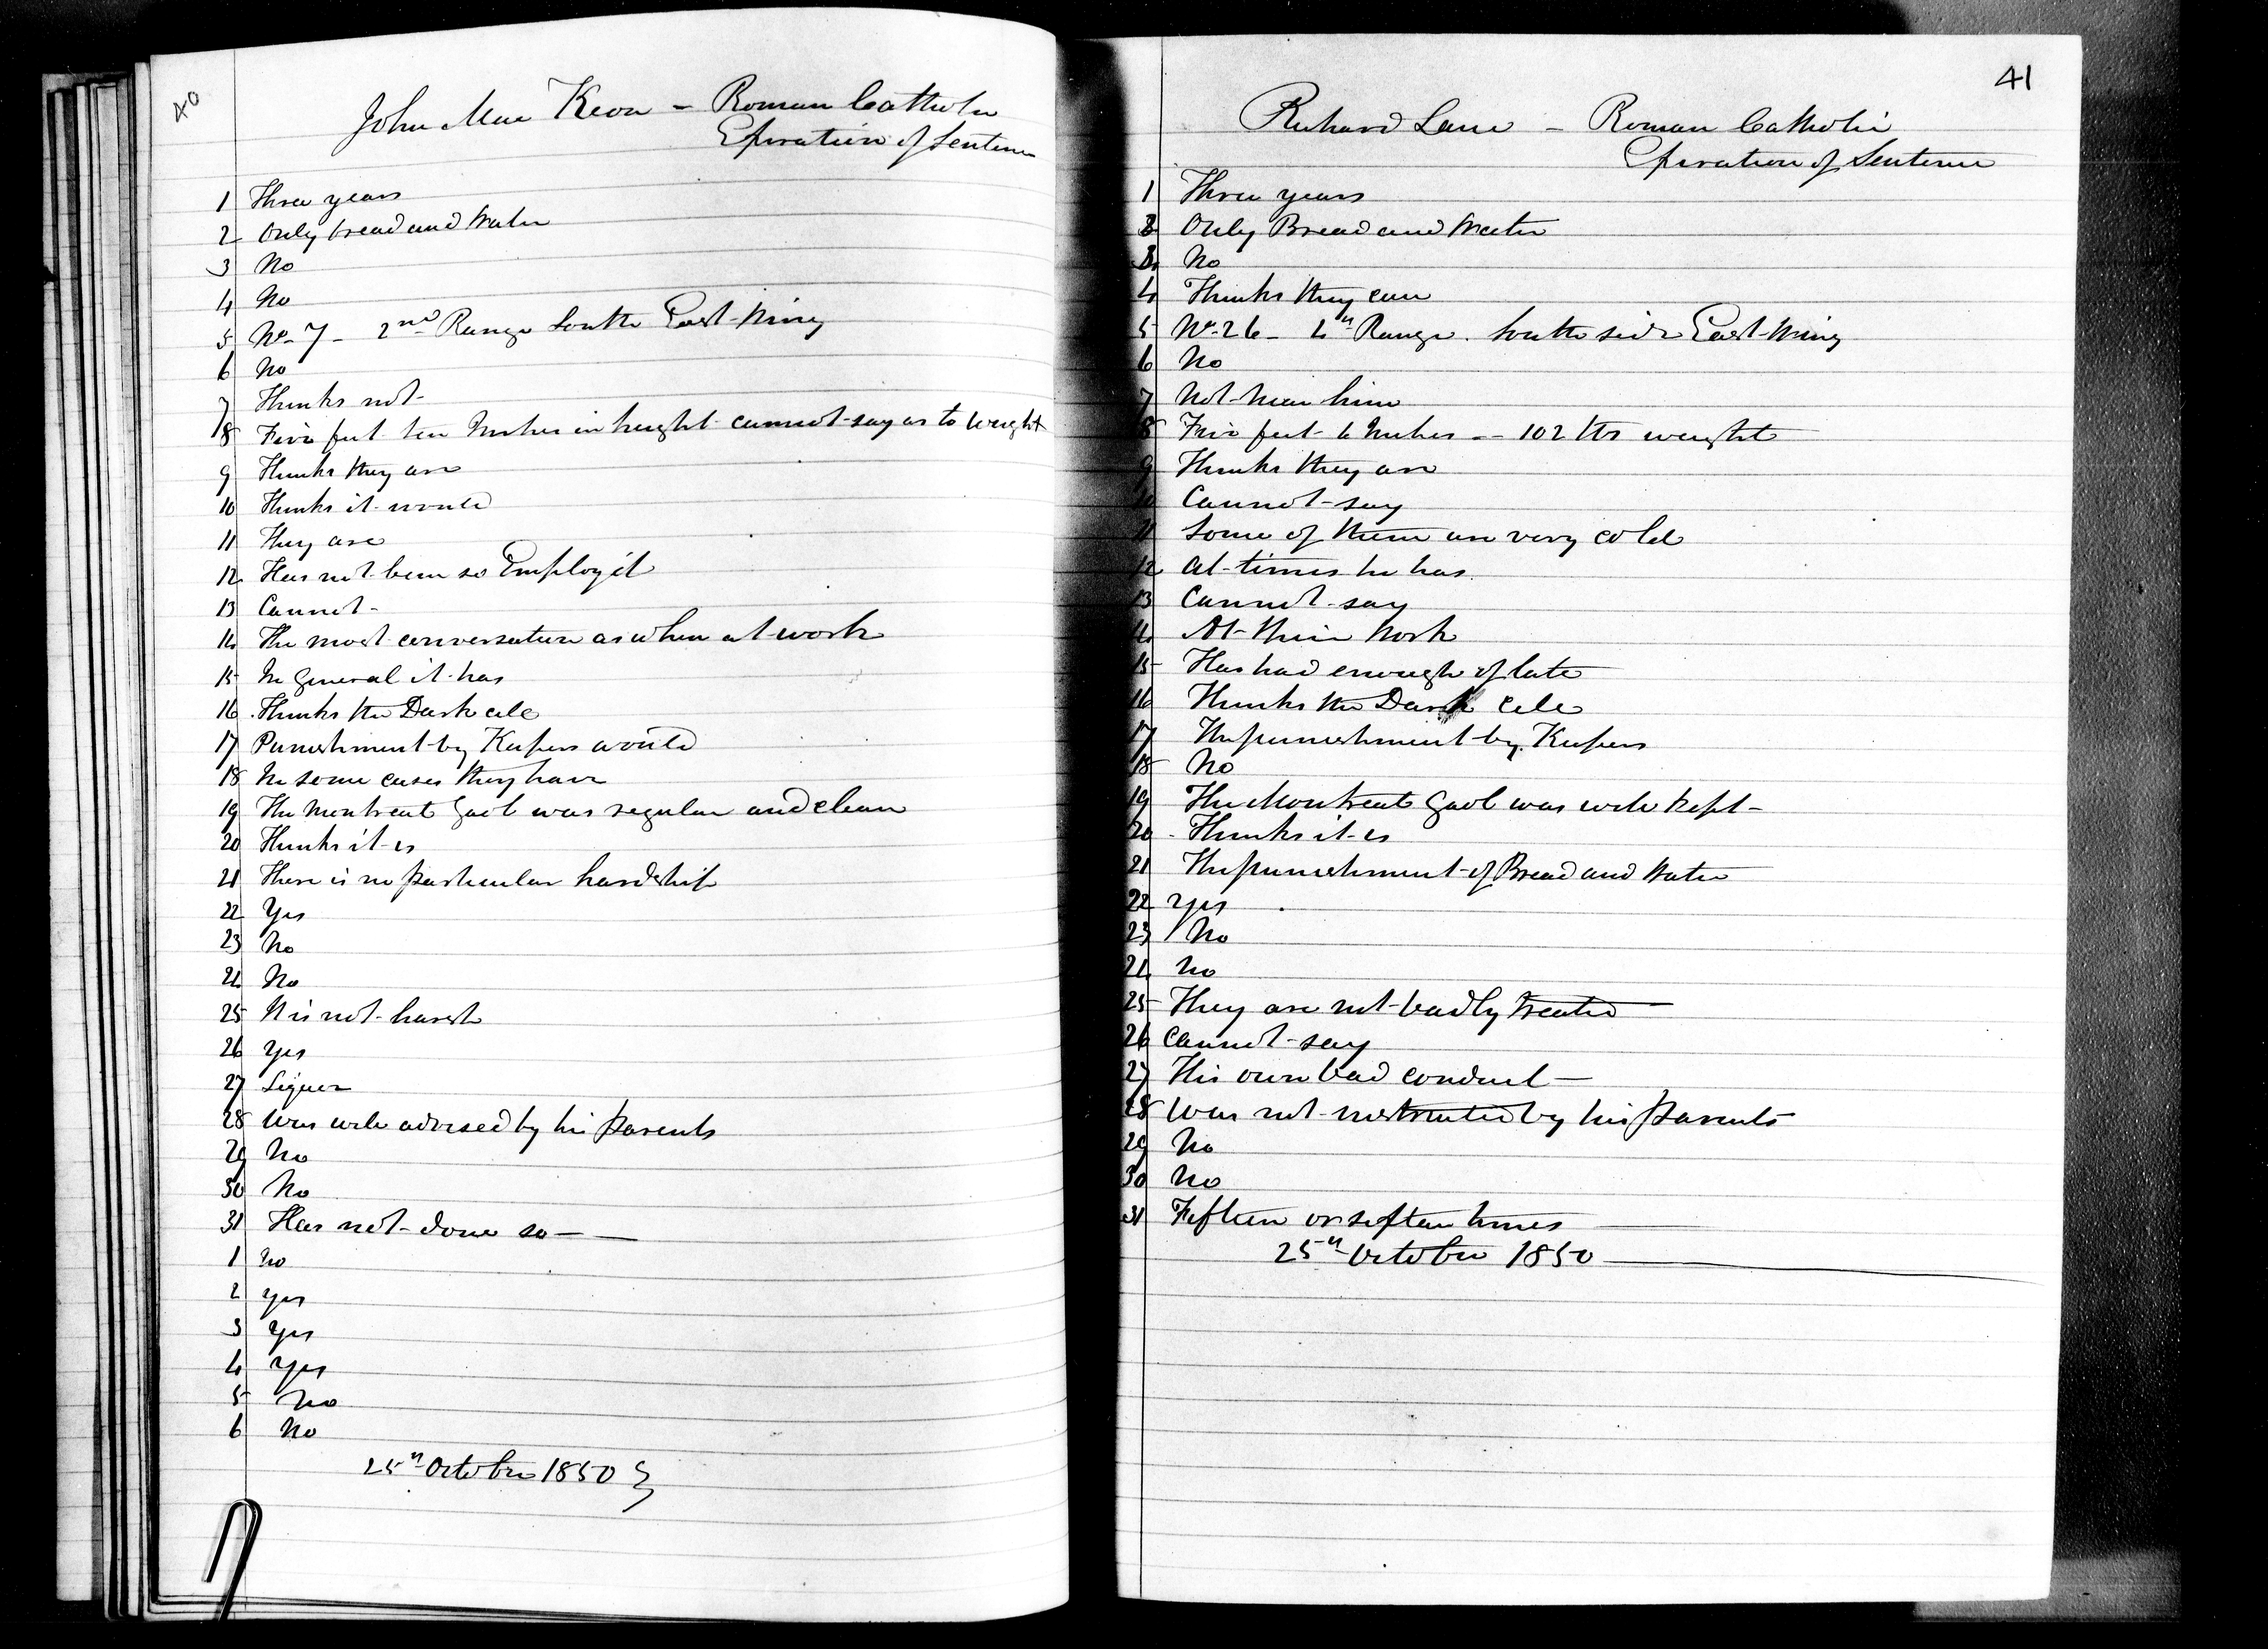 40
John Mac Keon - Roman Catholic
Expiration of Sentence
1 Three years
2 Only bread and Water
3 No
4 No
5 No- 7 - 2nd Range South East Wing
6 No
7 Thinks not-
8 Five feet ten Inches in height cannot say as to weight
9 Thinks they are
10 Thinks it would
11 They are
12 Has not been so Employ'd
13 Cannot-
14 The most conversation as when at work
15 In General it has
16 Thinks the Dark cell
17 Punishment by Keepers would
18 In some cases they have
19 The Montreal Gaol was regular and clean
20 Thinks it is
21 There is no particular hardship
22 Yes
23 No
24 No
25 It is not harsh
26 Yes
27 Liquor
28 Was well advised by his parents
29 No
30 No
31 Has not done so
1 No
2 Yes
3 Yes
4 Yes
5 No
6 No
25th October 1850
41
Richard Lane - Roman Catholic
Expiration of Sentence
1 Three years
2 Only Bread and Water
3 No
4 Thinks they can
5 No- 26 - 4th Range. South side East Wing
6 No
7 Not near him
8 Five feet 6 Inches -- 102 lbs weight
9 Thinks they are
10 Cannot say
11 Some of them are very cold
12 At times he has
13 Cannot say
14 At their Work
15 Has had enough of late
16 Thinks the Dark Cell
17 The punishment by Keepers
18 No
19 The Montreal Gaol was well kept-
20 Thinks it is
21 The punishment of Bread and Water
22 Yes
23 No
24 No
25 They are not badly treated
26 Cannot say
27 His own bad conduct
28 Was not instructed by his parents
29 No
30 No
31 Fifteen or times
25th October 1850